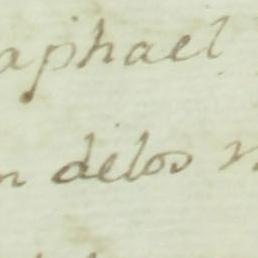 aphael
n délos